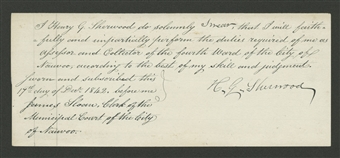 I Henry G. Sherwood do solemnly Swear, that I will faith-
fully and impartially perform the duties required of me as
Assessor and Collector of the fourth Ward of the City of
Nauvoo, according to the best of my Skill and judgment.
Sworn and subscribed this
17th day of Decr. 1842. before me
H. G. Sherwood
James Sloan, Clerk of the
Municipal Court of the City
of Nauvoo.